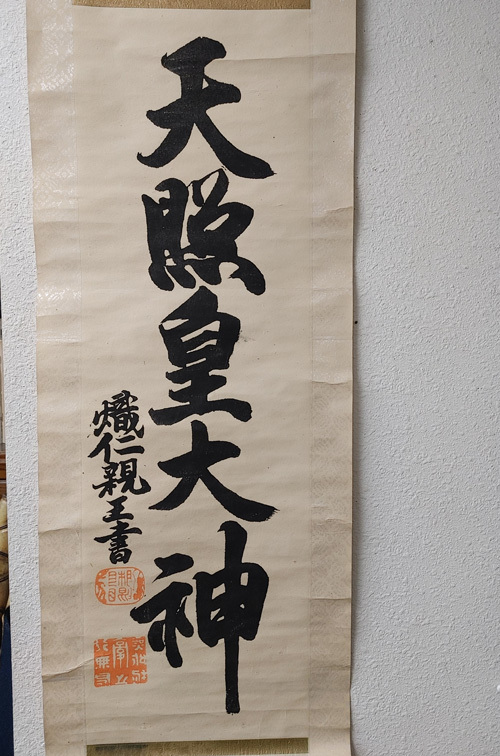 天照皇大神
熾仁親王書